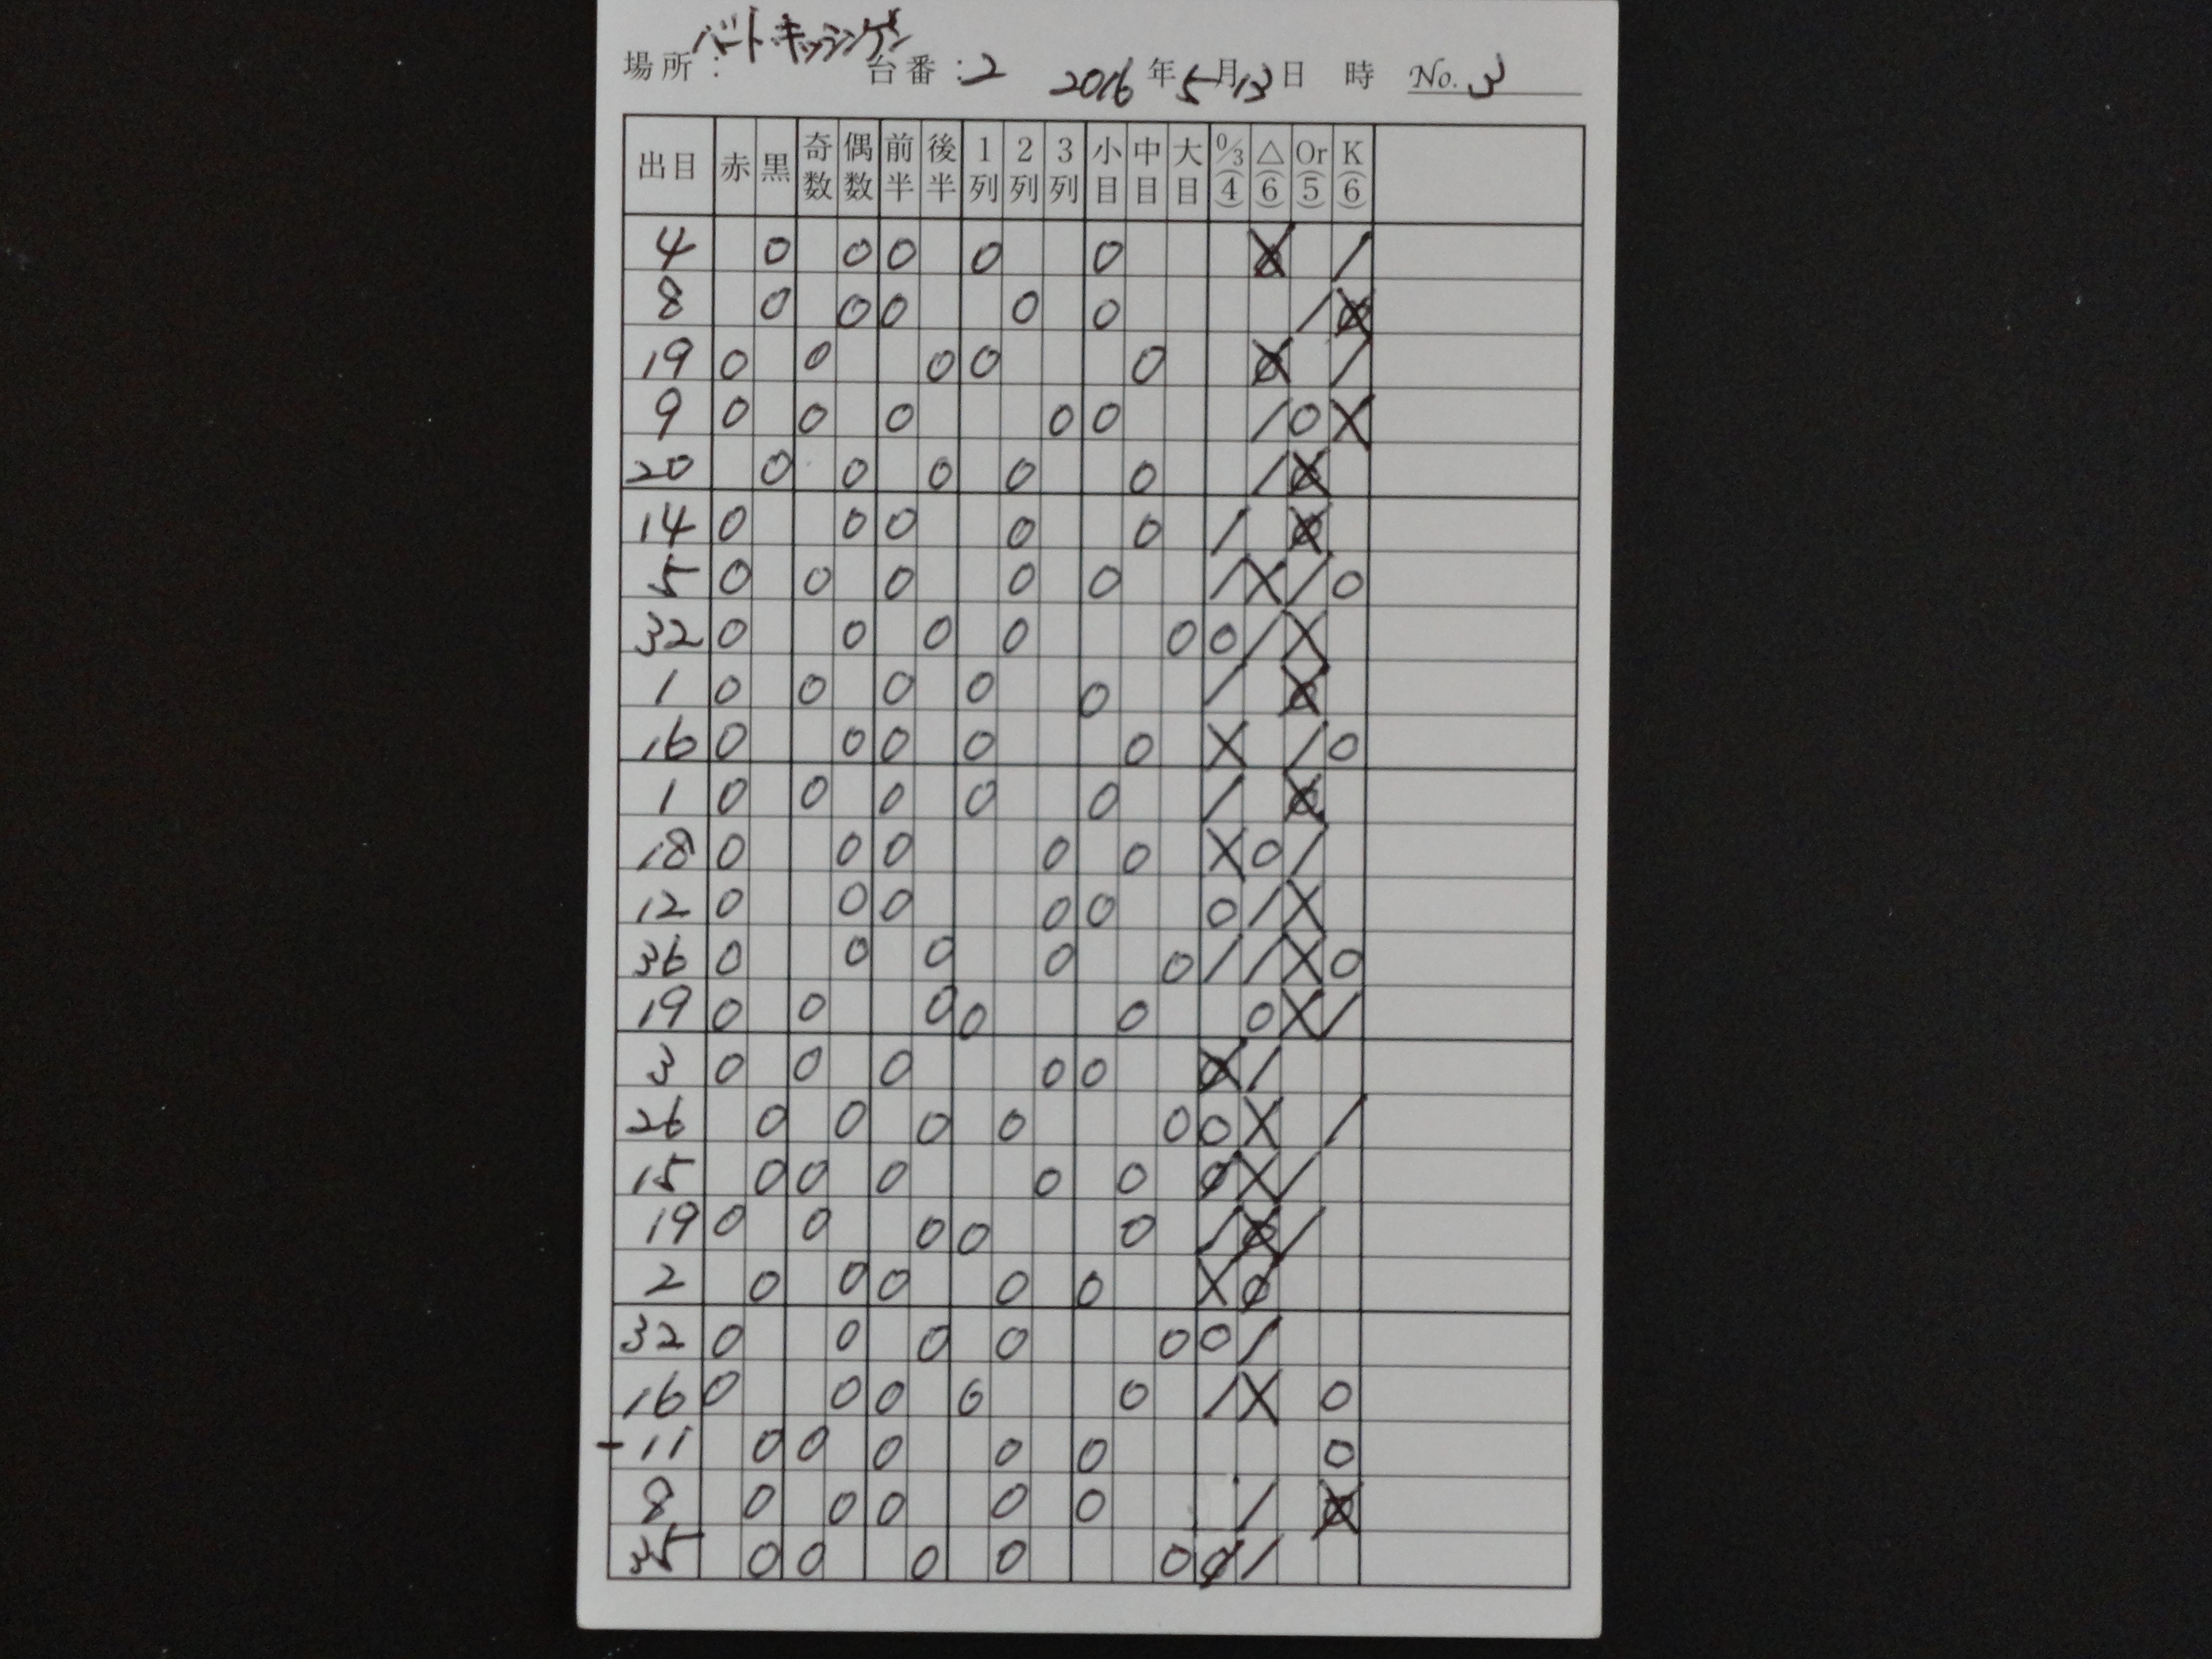 場所：バート・キッシンゲン 台番：2 2016年5月13日 時 No. 3
出目 赤 黒 奇数 偶数 前半 後半 1列 2列 3列 小目 中目 大目 0/3(4) △(6) Or(5) K(6)
4 0 0 0 0 0 X0 /
8 0 0 0 0 0 / X0
19 0 0 0 0 0 X0 /
9 0 0 0 0 0 / 0 X
20 0 0 0 0 0 / X0
14 0 0 0 0 0 / X0
5 0 0 0 0 0 / X / 0
32 0 0 0 0 0 0 / X
1 0 0 0 0 0 / X0
16 0 0 0 0 0 X / 0
1 0 0 0 0 0 / X0
18 0 0 0 0 0 X 0 /
12 0 0 0 0 0 0 / X
36 0 0 0 0 0 / / X 0
19 0 0 0 0 0 0 X /
3 0 0 0 0 0 X0 /
26 0 0 0 0 0 0 X /
15 0 0 0 0 0 Ø X /
19 0 0 0 0 0 / X0 /
2 0 0 0 0 0 X Ø
32 0 0 0 0 0 0 /
16 0 0 0 0 0 / X 0
- 11 0 0 0 0 0 0
8 0 0 0 0 0 / X0
35 0 0 0 0 0 Ø /